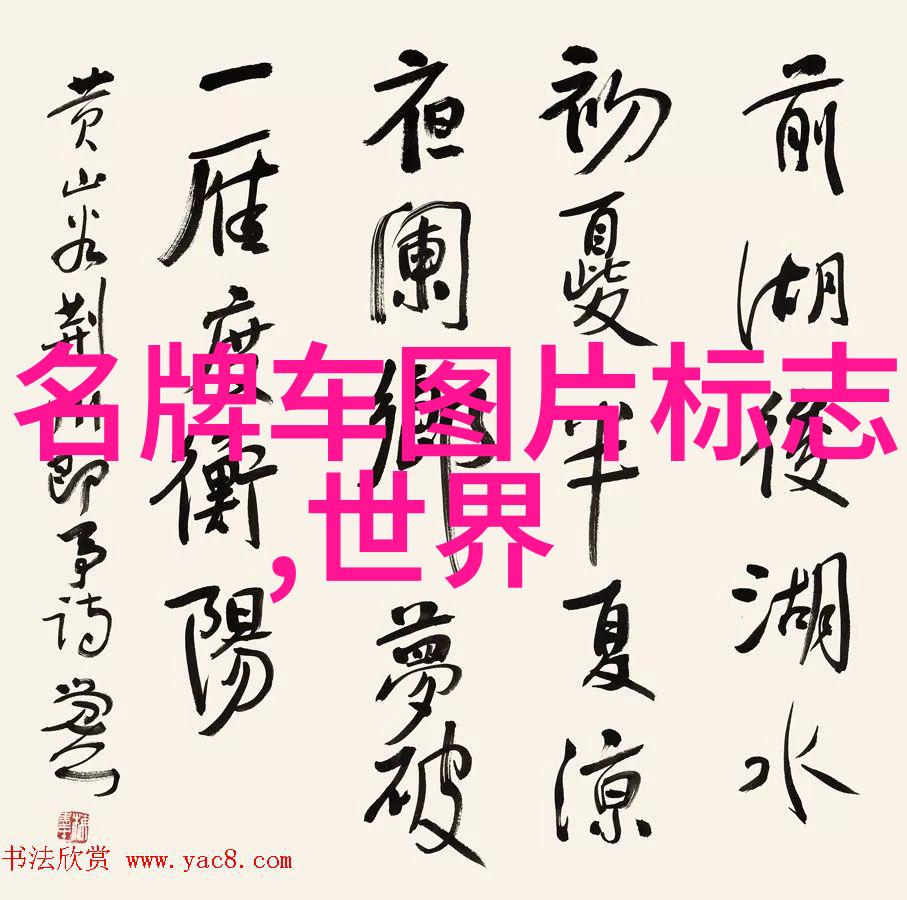 前湖後湖水
初夏半夏涼
夜闌鄉夢破
一雁度衡陽
黄山谷荆州即事诗
名牌车图片标志
,世界
书法欣赏 www.yac8.com